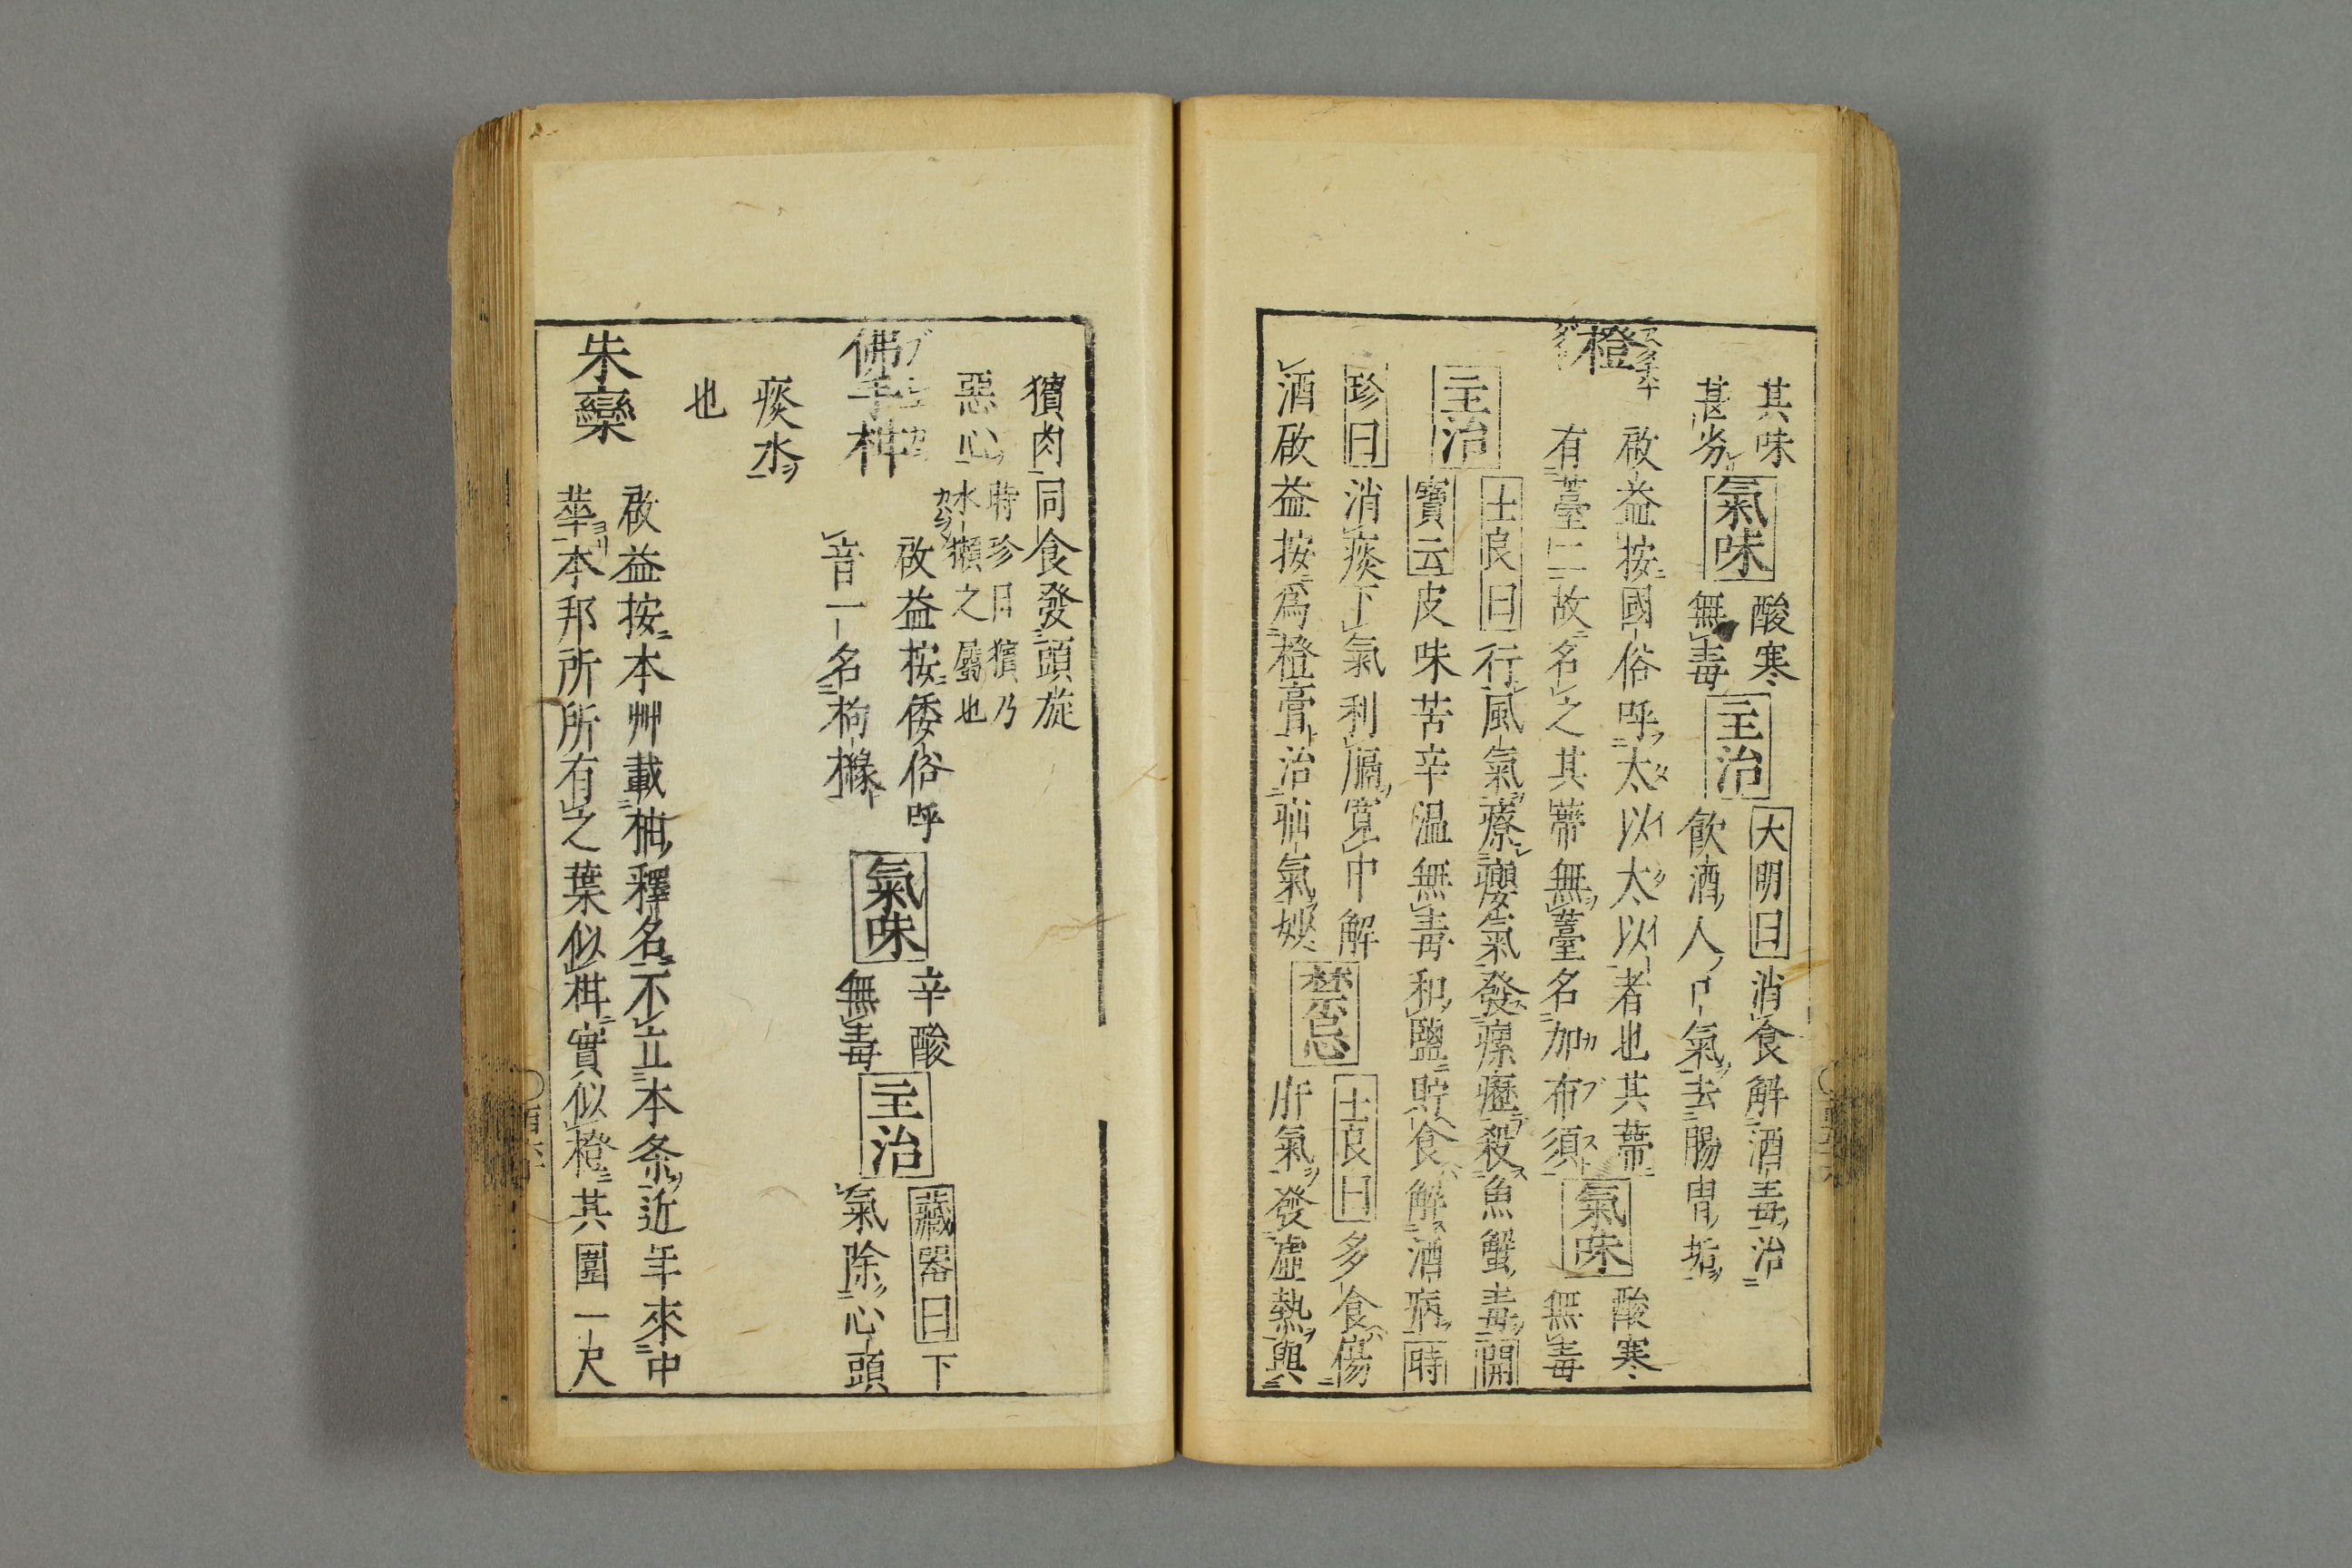 其味 酸寒 大明曰 消食解酒毒治
甚劣 氣味 無毒 主治 飲酒人口氣去腸胃垢
橙 啟益按國俗呼太以太以者也其蔕 酸寒
有薹二故名之其蔕無薹名加布須 氣味 無毒
主治 士良曰 行風氣療癭氣發瘰癧殺魚蟹毒 開
寶云 皮味苦辛温無毒和鹽貯食解酒病 時
珍曰 消痰下氣利膈寬中解 士良曰 多食傷
酒啟益按為橙膏治疝氣妙 禁忌 肝氣發虛熱與
獱肉同食發頭旋
惡心 時珍曰獱乃
水獺之屬也
佛手柑 啟益按倭俗呼 辛酸 藏器曰 下
音一名枸櫞 氣味 無毒 主治 氣除心頭
痰水
也
朱欒 啟益按本艸載柚釋名不立本条近年來中
華本邦所所有之葉似柑實似橙其圍一尺